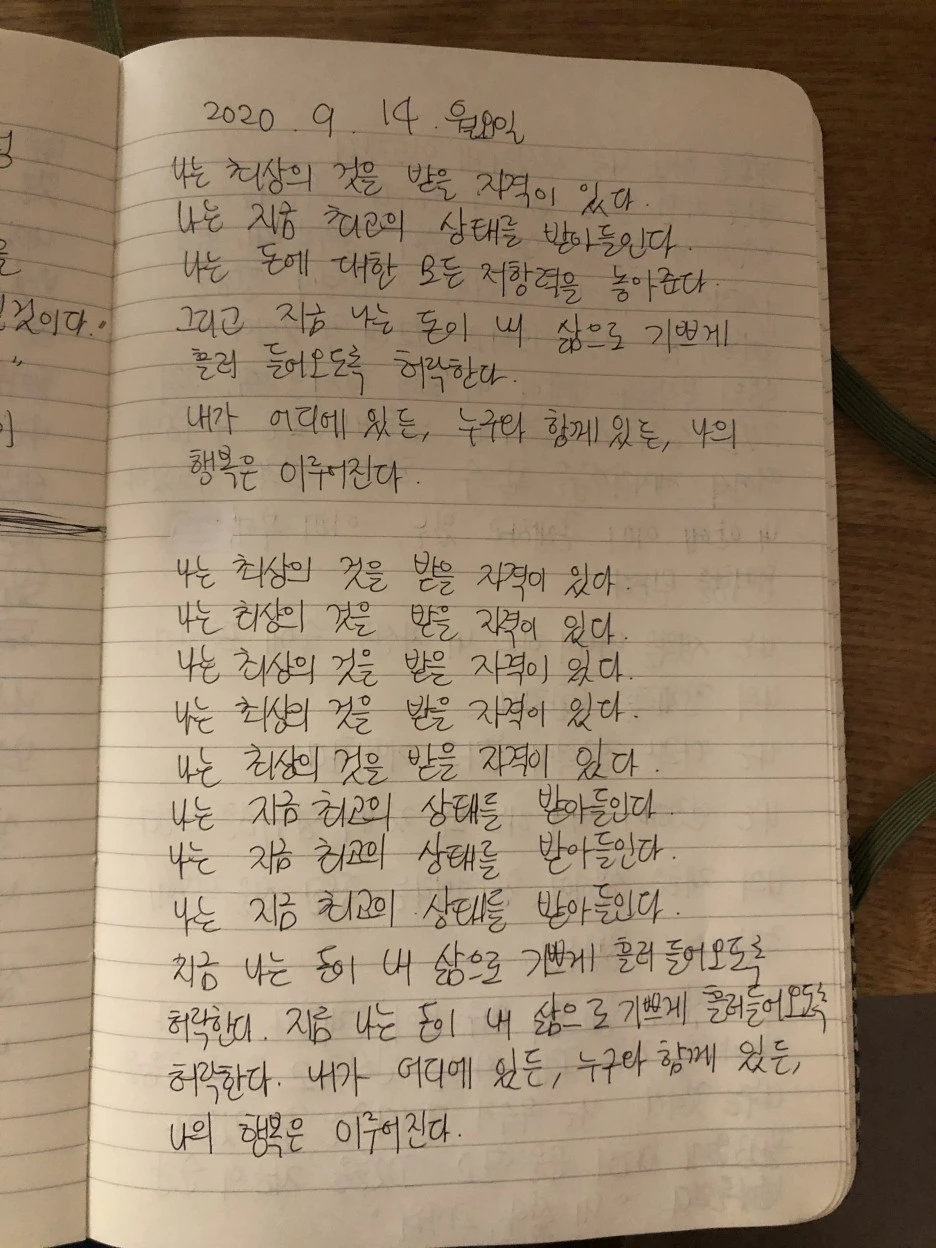 2020. 9. 14. 월요일
나는 최상의 것을 받을 자격이 있다.
나는 지금 최고의 상태를 받아들인다.
나는 돈에 대한 모든 저항력을 놓아준다.
그리고 지금 나는 돈이 내 삶으로 기쁘게
흘러 들어오도록 허락한다.
내가 어디에 있든, 누구와 함께 있든, 나의
행복은 이루어진다.
나는 최상의 것을 받을 자격이 있다.
나는 최상의 것을 받을 자격이 있다.
나는 최상의 것을 받을 자격이 있다.
나는 최상의 것을 받을 자격이 있다.
나는 최상의 것을 받을 자격이 있다.
나는 지금 최고의 상태를 받아들인다.
나는 지금 최고의 상태를 받아들인다.
나는 지금 최고의 상태를 받아들인다.
지금 나는 돈이 내 삶으로 기쁘게 흘러 들어오도록
허락한다. 지금 나는 돈이 내 삶으로 기쁘게 흘러들어오도록
허락한다. 내가 어디에 있든, 누구와 함께 있든,
나의 행복은 이루어진다.